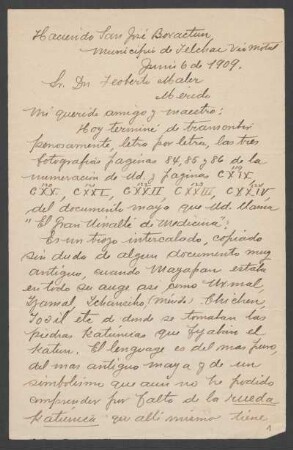 Hacienda San José Boxactun,
Municipio de Telchac Via Motul
Junio 6 de 1909.
Sr. Dn. Teoberto Maler
Merida
Mi querido amigo y maestro:
Hoy terminé de transcribir
penosamente, letra por letra, las tres
fotografias paginas 84, 85 y 86 de la
numeracion de Ud. y paginas CXIX
CXX, CXXI, CXXII CXXIII, CXXIV
del documento maya que Ud. llama
"El Gran Uinalté de Medicina":
Es un trozo intercalado, copiado
sin duda de algun documento muy
antiguo, cuando Mayapan estaba
en todo su auge asi como Uxmal,
Izamal, Ichcanzihó Chichen,
etc de donde se tomaban las
piedras katúnicas que fijaban el
Katun. El lenguage es del mas puro,
del mas antiguo maya y de un
simbolismo que aun no he podido
comprender por falta de la rueda
katúnica que alli mismo tiene